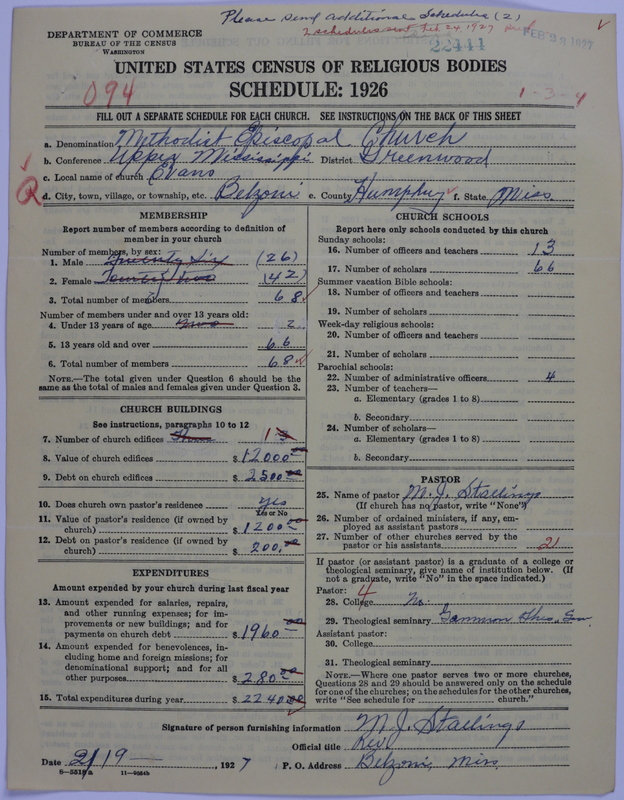 Please send additional schedules (2)
2 schedules sent Feb 24 1927
DEPARTMENT OF COMMERCE
BUREAU OF THE CENSUS
WASHINGTON
22441
UNITED STATES CENSUS OF RELIGIOUS BODIES
SCHEDULE: 1926
094
1-3-4
FILL OUT A SEPARATE SCHEDULE FOR EACH CHURCH. SEE INSTRUCTIONS ON THE BACK OF THIS SHEET
a. Denomination Methodist Episcopal Church
b. Conference Upper Mississippi District Greenwood
c. Local name of church Evans
d. City, town, village, or township, etc. Belzoni e. County Humphry f. State Miss.
MEMBERSHIP
Report number of members according to definition of
member in your church
Number of members, by sex:
1. Male Twenty Six (26)
2. Female (42)
3. Total number of members 68
Number of members under and over 13 years old:
4. Under 13 years of age 2
5. 13 years old and over 66
6. Total number of members 68
NOTE.—The total given under Question 6 should be the
same as the total of males and females given under Question 3.
CHURCH BUILDINGS
See instructions, paragraphs 10 to 12
7. Number of church edifices 1
8. Value of church edifices $12000.00
9. Debt on church edifices $2500.00
10. Does church own pastor's residence yes
Yes or No
11. Value of pastor's residence (if owned by
church) $1200.00
12. Debt on pastor's residence (if owned by
church) $200.00
EXPENDITURES
Amount expended by your church during last fiscal year
13. Amount expended for salaries, repairs,
and other running expenses; for im-
provements or new buildings; and for
payments on church debt $1960.00
14. Amount expended for benevolences, in-
cluding home and foreign missions; for
denominational support; and for all
other purposes $280.00
15. Total expenditures during year $2240.00
CHURCH SCHOOLS
Report here only schools conducted by this church
Sunday schools:
16. Number of officers and teachers 13
17. Number of scholars 66
Summer vacation Bible schools:
18. Number of officers and teachers
19. Number of scholars
Week-day religious schools:
20. Number of officers and teachers
21. Number of scholars
Parochial schools:
22. Number of administrative officers 4
23. Number of teachers—
a. Elementary (grades 1 to 8)
b. Secondary
24. Number of scholars—
a. Elementary (grades 1 to 8)
b. Secondary
PASTOR
25. Name of pastor M. J. Stallings
(If church has no pastor, write "None")
26. Number of ordained ministers, if any, em-
ployed as assistant pastors
27. Number of other churches served by the
pastor or his assistants 2
If pastor (or assistant pastor) is a graduate of a college or
theological seminary, give name of institution below. (If
not a graduate, write "No" in the space indicated.)
Pastor: 4
28. College No.
29. Theological seminary Gammon Theo. Sem
Assistant pastor:
30. College
31. Theological seminary
NOTE.—Where one pastor serves two or more churches,
Questions 28 and 29 should be answered only on the schedule
for one of the churches; on the schedules for the other churches,
write "See schedule for church."
Signature of person furnishing information M. J. Stallings
Official title Rev.
Date 2/19, 1927 P. O. Address Belzoni, Miss.
8-5515a 11-9264b